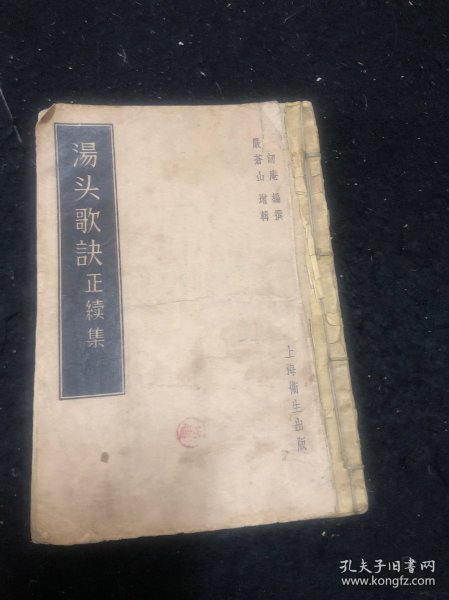 湯头歌訣正續集
訒庵 編撰
嚴蒼山 增輯
上海衛生出版
孔夫子旧書网
www.kongfz.com